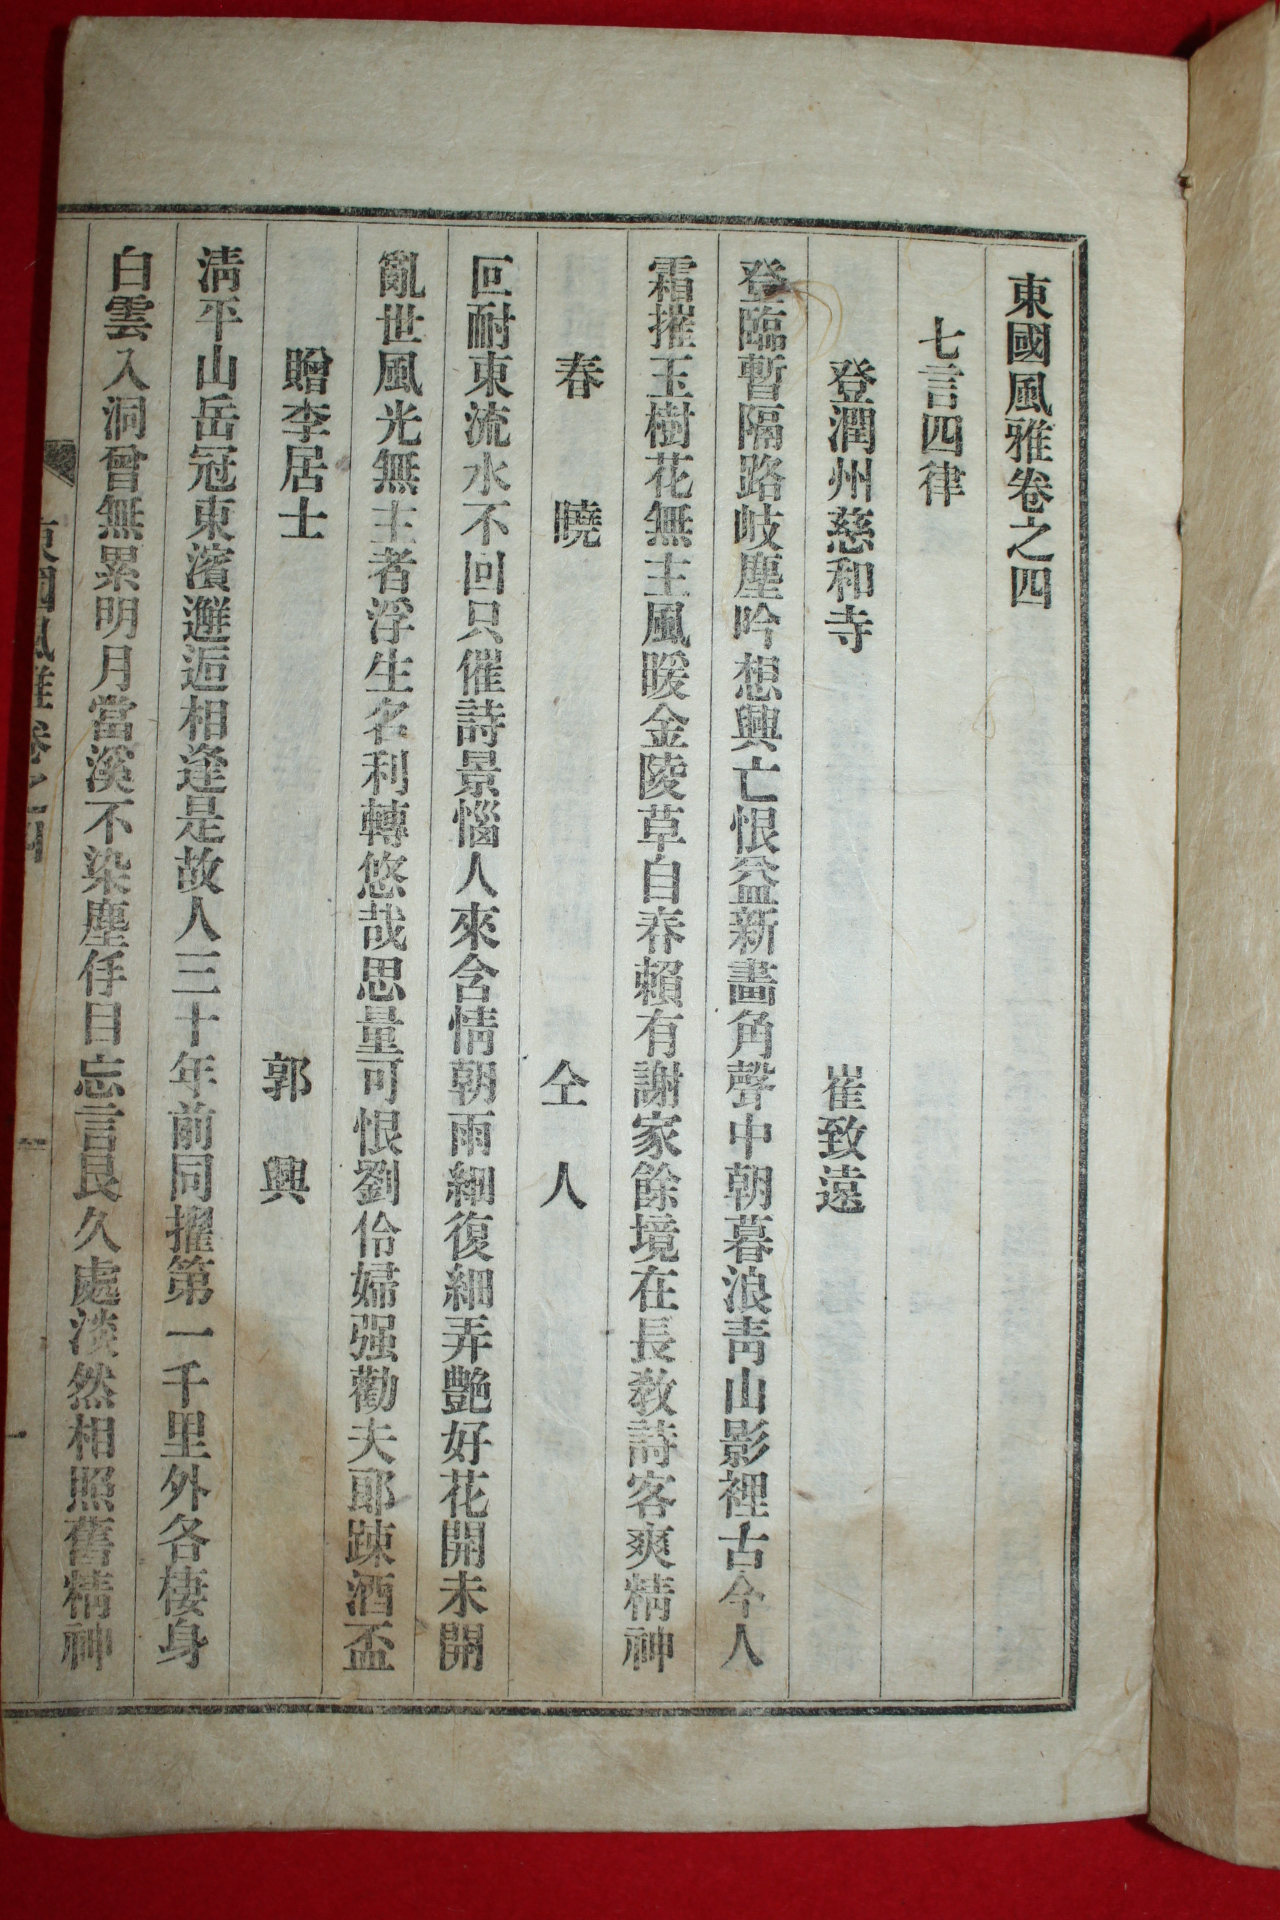 東國風雅卷之四
七言四律
登潤州慈和寺 崔致遠
登臨暫隔路岐塵吟想興亡恨益新畵角聲中朝暮浪靑山影裡古今人
霜摧玉樹花無主風暖金陵草自春賴有謝家餘境在長敎詩客爽精神
春曉 仝人
叵耐東流水不回只催詩景惱人來含情朝雨細復細弄艶好花開未開
亂世風光無主者浮生名利轉悠哉思量可恨劉伶婦强勸夫郞踈酒盃
贈李居士 郭興
淸平山岳冠東濱邂逅相逢是故人三十年前同擢第一千里外各棲身
白雲入洞曾無累明月當溪不染塵仟目忘言良久處淡然相照舊精神
東國風雅卷之四 一